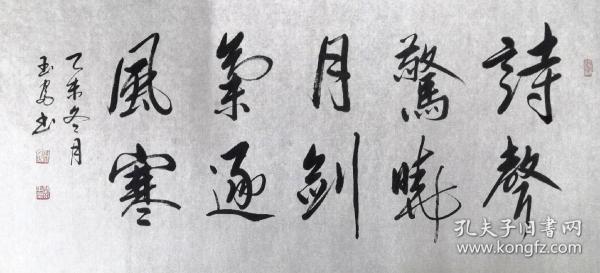 詩聲
驚曉
月劍
氣逐
風寒
乙未冬月
玉安书
孔夫子旧书网
www.kongfz.com